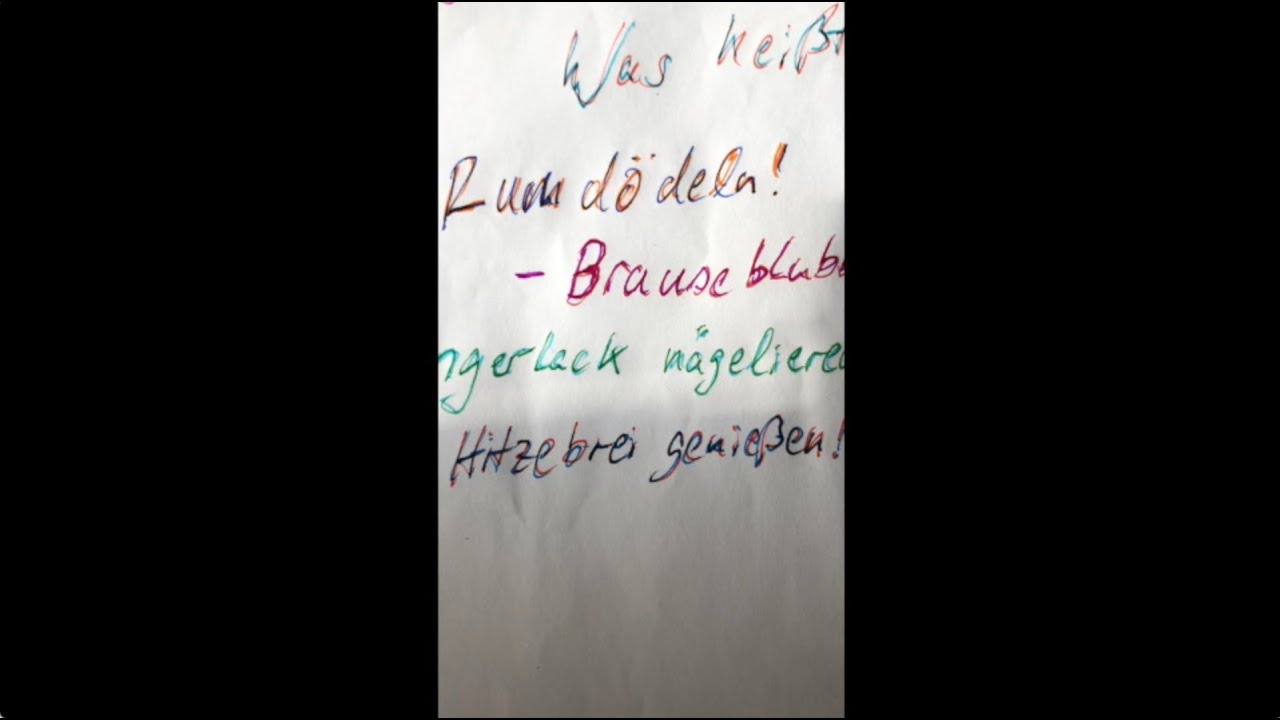 Was heißt
Rumdödeln!
- Brauseblub
ngerlack nägeliere
Hitzebrei genießen!